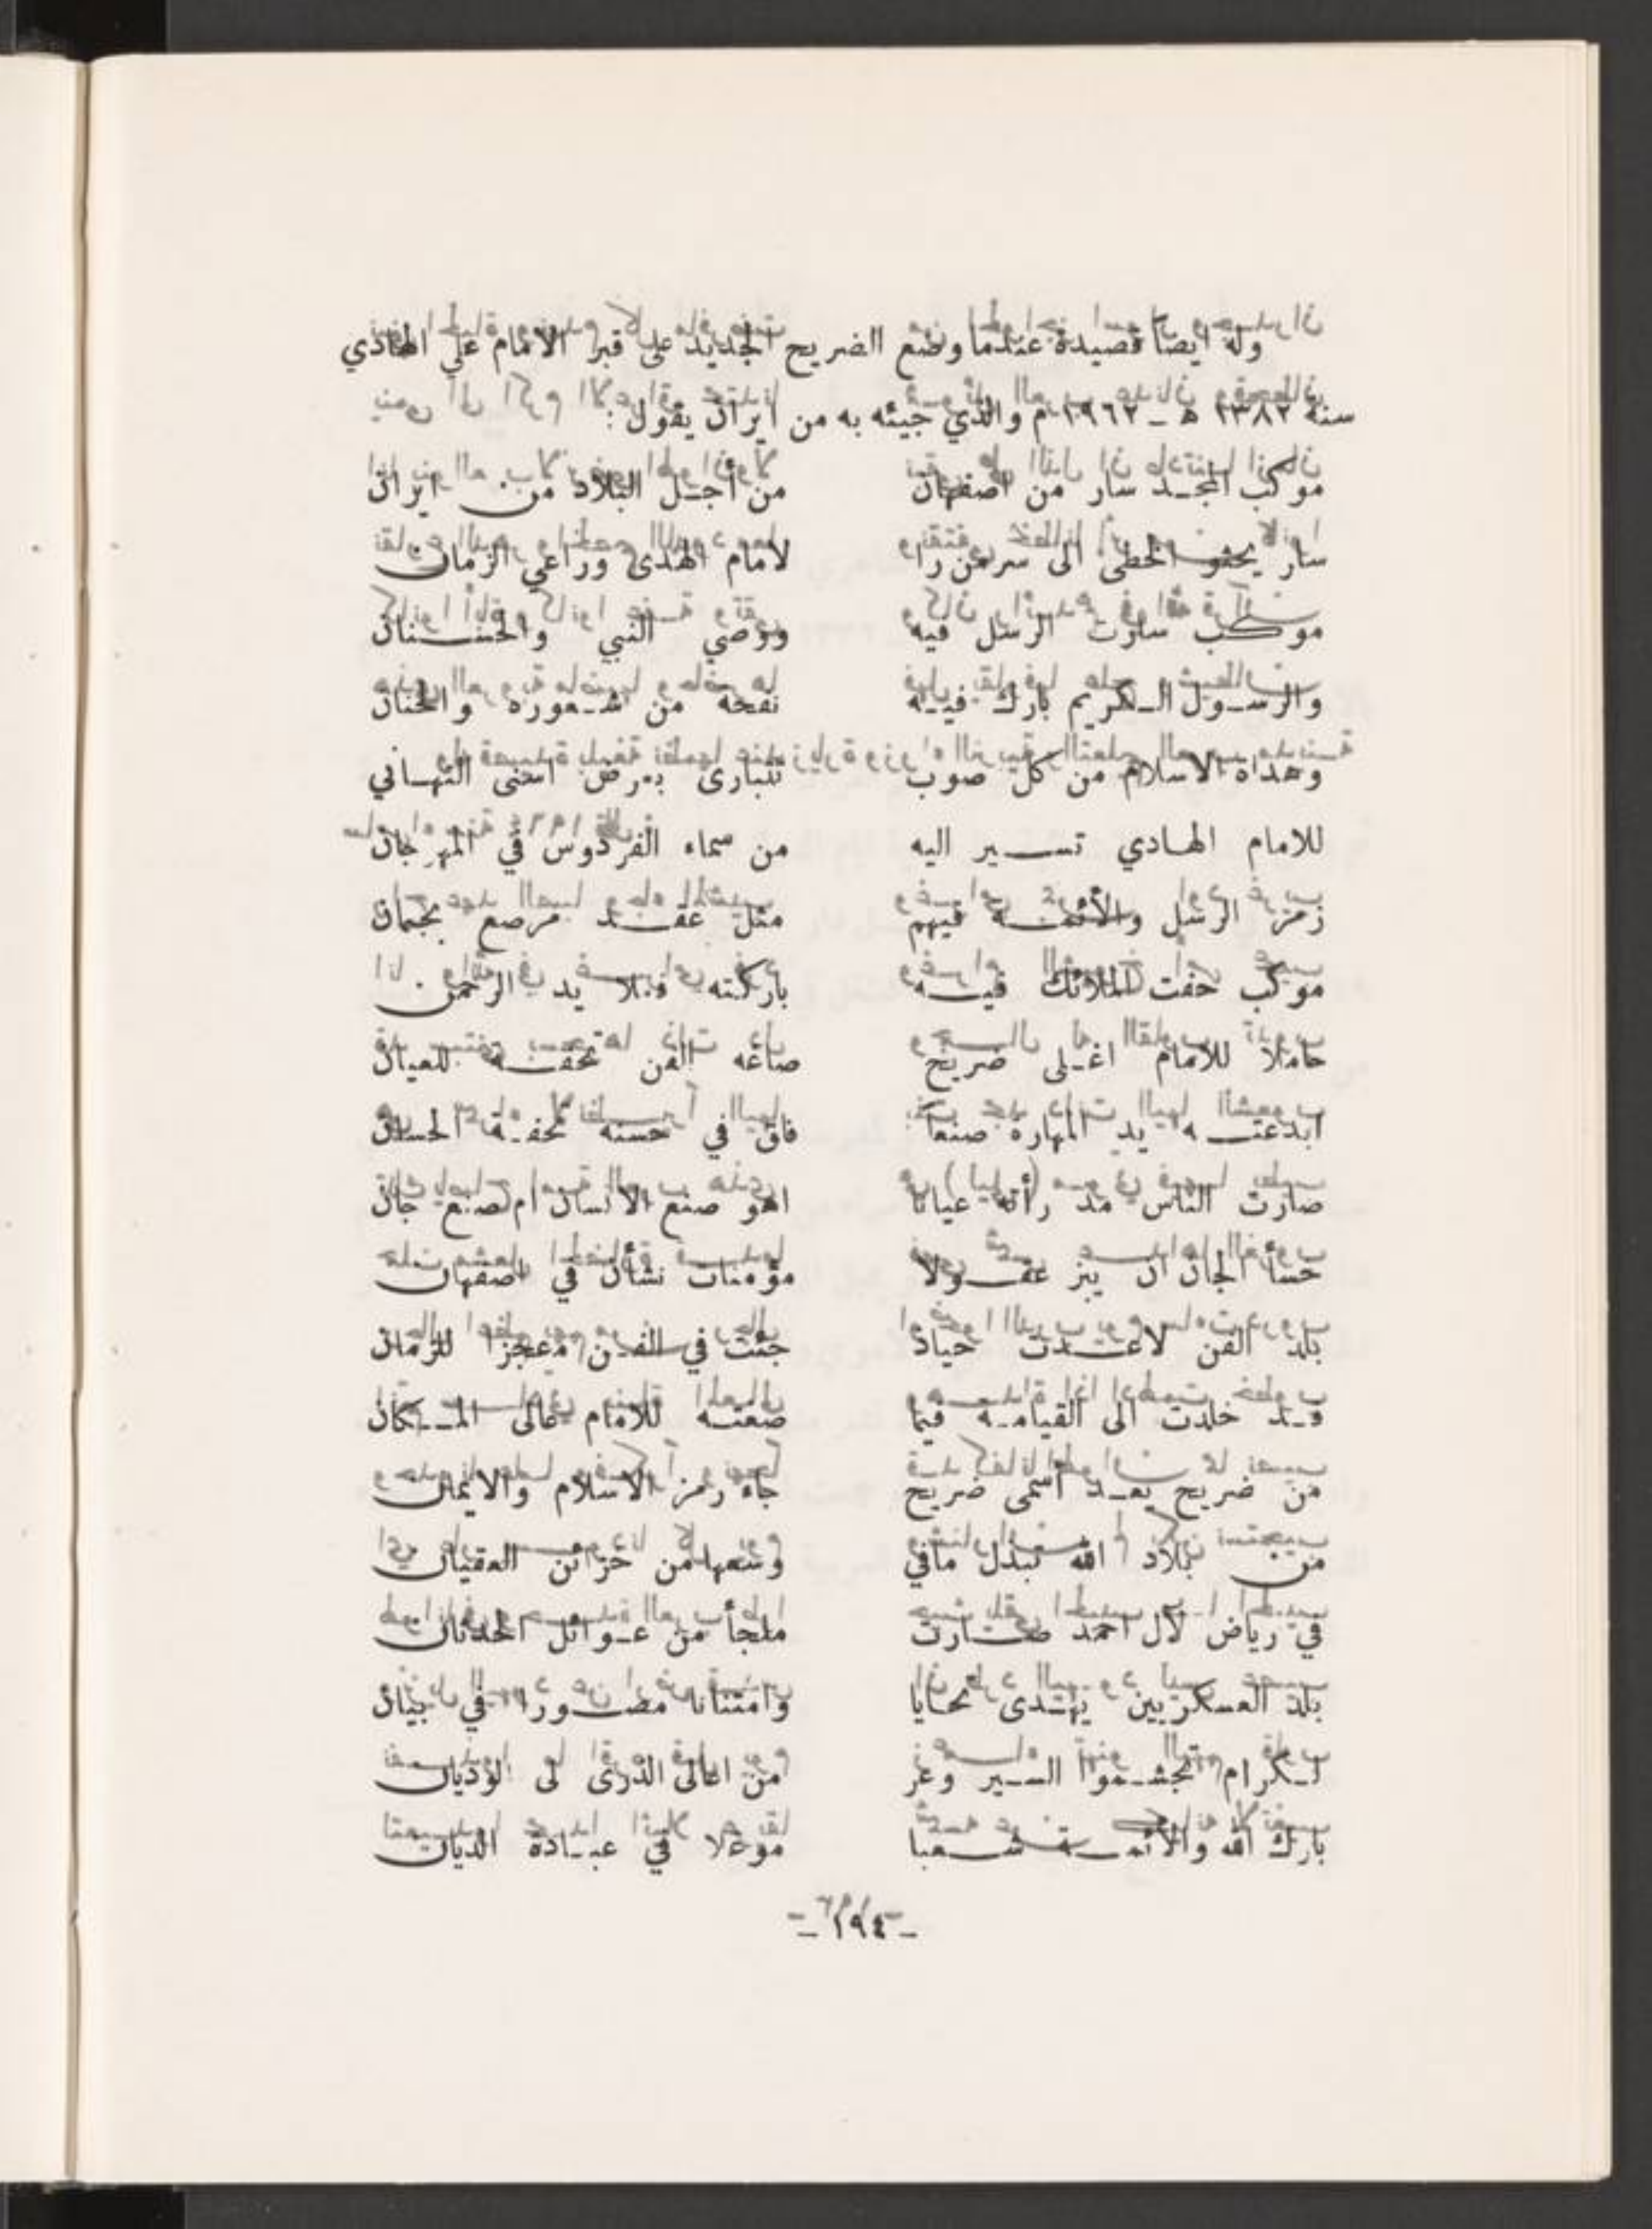 وله ايضا قصيدة عندما وضع الضريح الجديد على قبر الامام علي الهادي
سنة ١٣٨٢ ه ـ ١٩٦٢ م والذي جيئه به من ايران يقول :
موكب المجد سار من اصفهان من أجل البلاد من ايران
سار يحثو الخطى الى سر من را لامام الهدى وراعي الزمان
موكب سارت الرسل فيه ووصي النبي والحسنان
والرسول الكريم بارك فيه نفحه من شعوره والحنان
وهداة الاسلام من كل صوب تتبارى بعرض اسنى التهاني
للامام الهادي تسير اليه من سماء الفردوس في المهرجان
زمر الرسل والأئمة فيهم مثل عقد مرصع بجمان
موكب حفت الملائك فيه باركته قبلا يد الرحمن
حاملا للامام اغلى ضريح صاغه الفن تحفة للعيان
ابدعته يد المهارة صنعا فاق في حسنه تحفة الحسان
صارت الناس مذ رأته عيانا اهو صنع الانسان ام صنع جان
خسأ الجان ان يبز عقولا مؤمنات نشأن في اصفهان
بلد الفن لاعدت حياد جئت في الفن معجزا للزمان
قد خلدت الى القيامة فيما صغته للامام عالى المكان
من ضريح يعد اسمى ضريح جاء رمز الاسلام والايمان
من بلاد الله تبذل مافي وسعها من خزائن العقيان
في رياض لآل احمد صارت ملجأ من غوائل الحدثان
بلد العسكريين يهدى تحايا وامتنانا مصورا في بيان
لكرام تجشموا السير وعر من اعالى الذرى لى الوديان
بارك الله والأئمة شعبا موغلا في عبادة الديان
ـ ١٩٤ ـ